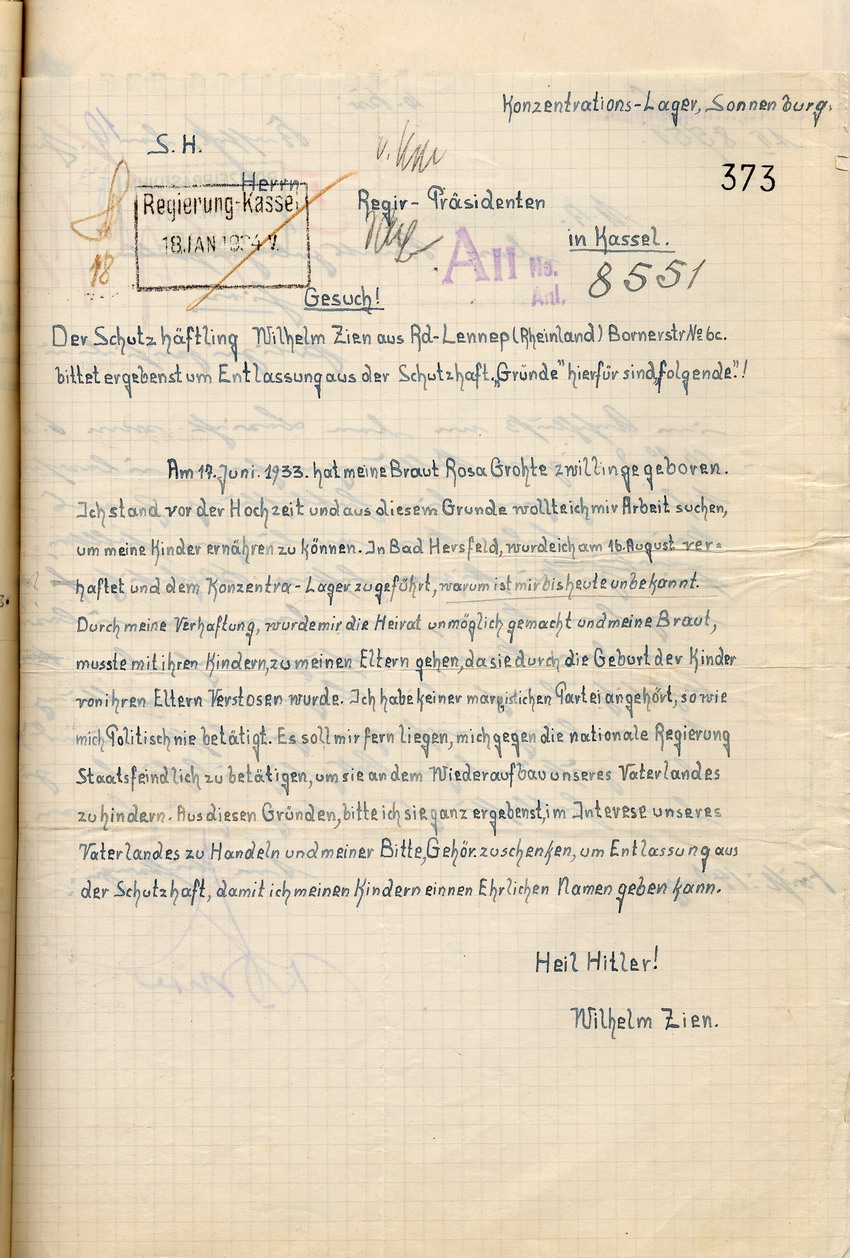 Konzentrations-Lager, Sonnenburg.
S. H.
373
Herrn
Regierung-Kassel
18. JAN 1934 V.
18
Regir- Präsidenten
in Kassel.
A II No. 8551
Anl.
Gesuch!
Der Schutzhäftling Wilhelm Zien aus Rd-Lennep (Rheinland) Bornerstr № 6c.
bittet ergebenst um Entlassung aus der Schutzhaft. „Gründe" hierfür sind „folgende"!
Am 17. Juni. 1933. hat meine Braut Rosa Grohte zwillinge geboren.
Ich stand vor der Hochzeit und aus diesem Grunde wollte ich mir Arbeit suchen,
um meine Kinder ernähren zu können. In Bad Hersfeld, wurde ich am 16. August ver=
haftet und dem Konzentra- Lager zugeführt, warum ist mir bis heute unbekannt.
Durch meine Verhaftung, wurde mir die Heirat unmöglich gemacht und meine Braut,
musste mit ihren Kindern, zu meinen Eltern gehen, da sie durch die Geburt der Kinder
von ihren Eltern Verstosen wurde. Ich habe keiner marxistichen Partei angehört, so wie
mich Politisch nie betätigt. Es soll mir fern liegen, mich gegen die nationale Regierung
Staatsfeindlich zu betätigen, um sie an dem Wiederaufbau unseres Vaterlandes
zu hindern. Aus diesen Gründen, bitte ich sie ganz ergebenst, im Interese unseres
Vaterlandes zu Handeln und meiner Bitte, Gehör. zu schenken, um Entlassung aus
der Schutzhaft, damit ich meinen Kindern einnen Ehrlichen Namen geben kann.
Heil Hitler!
Wilhelm Zien.